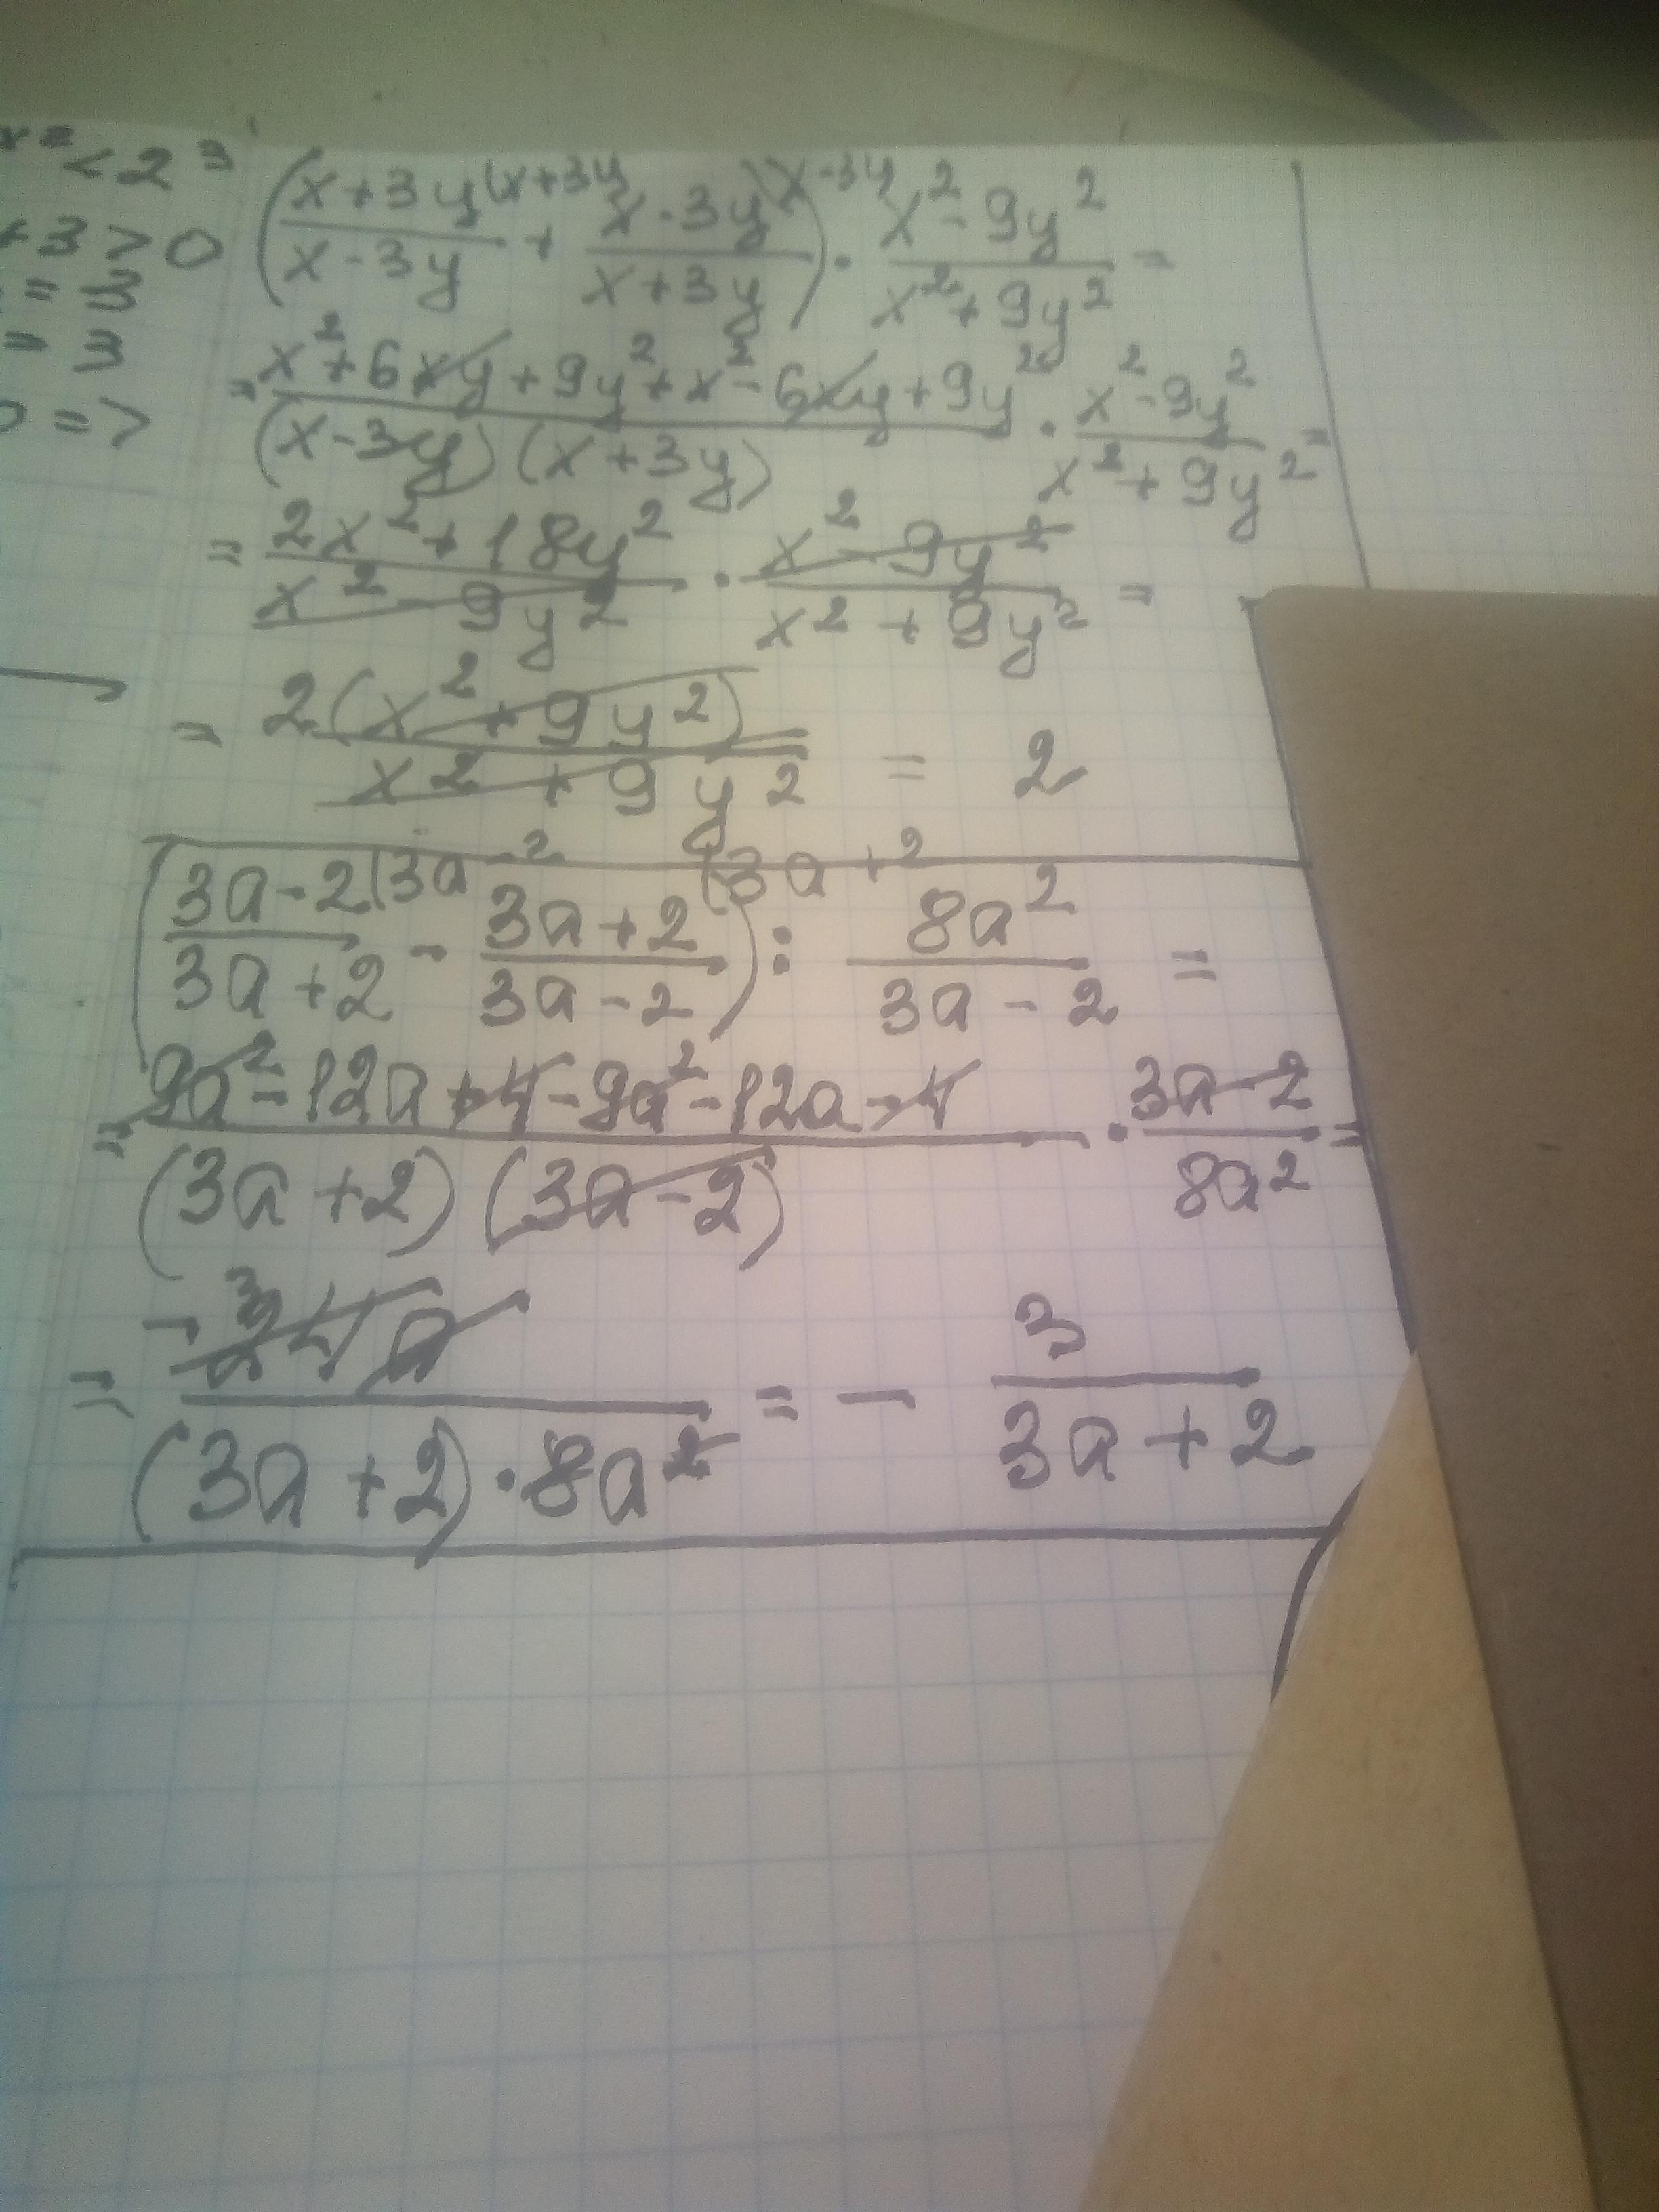 x² < 2³
+3 > 0
= 3
= 3
=>
((x+3y)/(x-3y) (x+3y + (x-3y)/(x+3y) (x-3y) · (x²-9y²)/(x²+9y²) =
= (x²+6xy+9y²+x²-6xy+9y²)/((x-3y)(x+3y)) · (x²-9y²)/(x²+9y²) =
= (2x²+18y²)/(x²-9y²) · (x²-9y²)/(x²+9y²) =
= 2(x²+9y²)/(x²+9y²) = 2
((3a-2)/(3a+2) (3a-2 - (3a+2)/(3a-2) (3a+2) : 8a²/(3a-2) =
= (9a²-12a+4-9a²-12a-4)/((3a+2)(3a-2)) · (3a-2)/8a² =
= -24a 3/((3a+2)·8a²) = - 3/(3a+2)